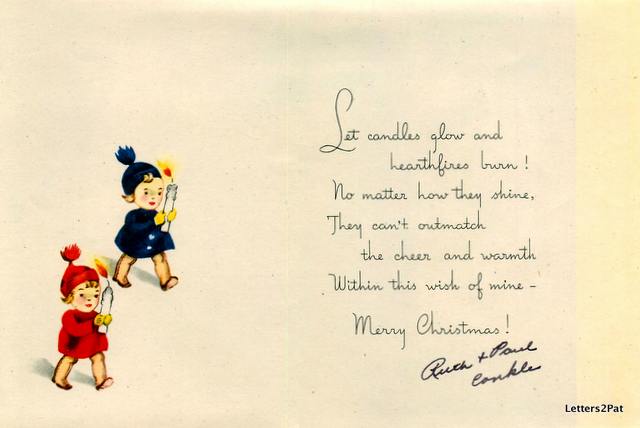 Let candles glow and
hearthfires burn!
No matter how they shine,
They can't outmatch
the cheer and warmth
Within this wish of mine -
Merry Christmas!
Ruth + Paul
Conkle
Letters2Pat